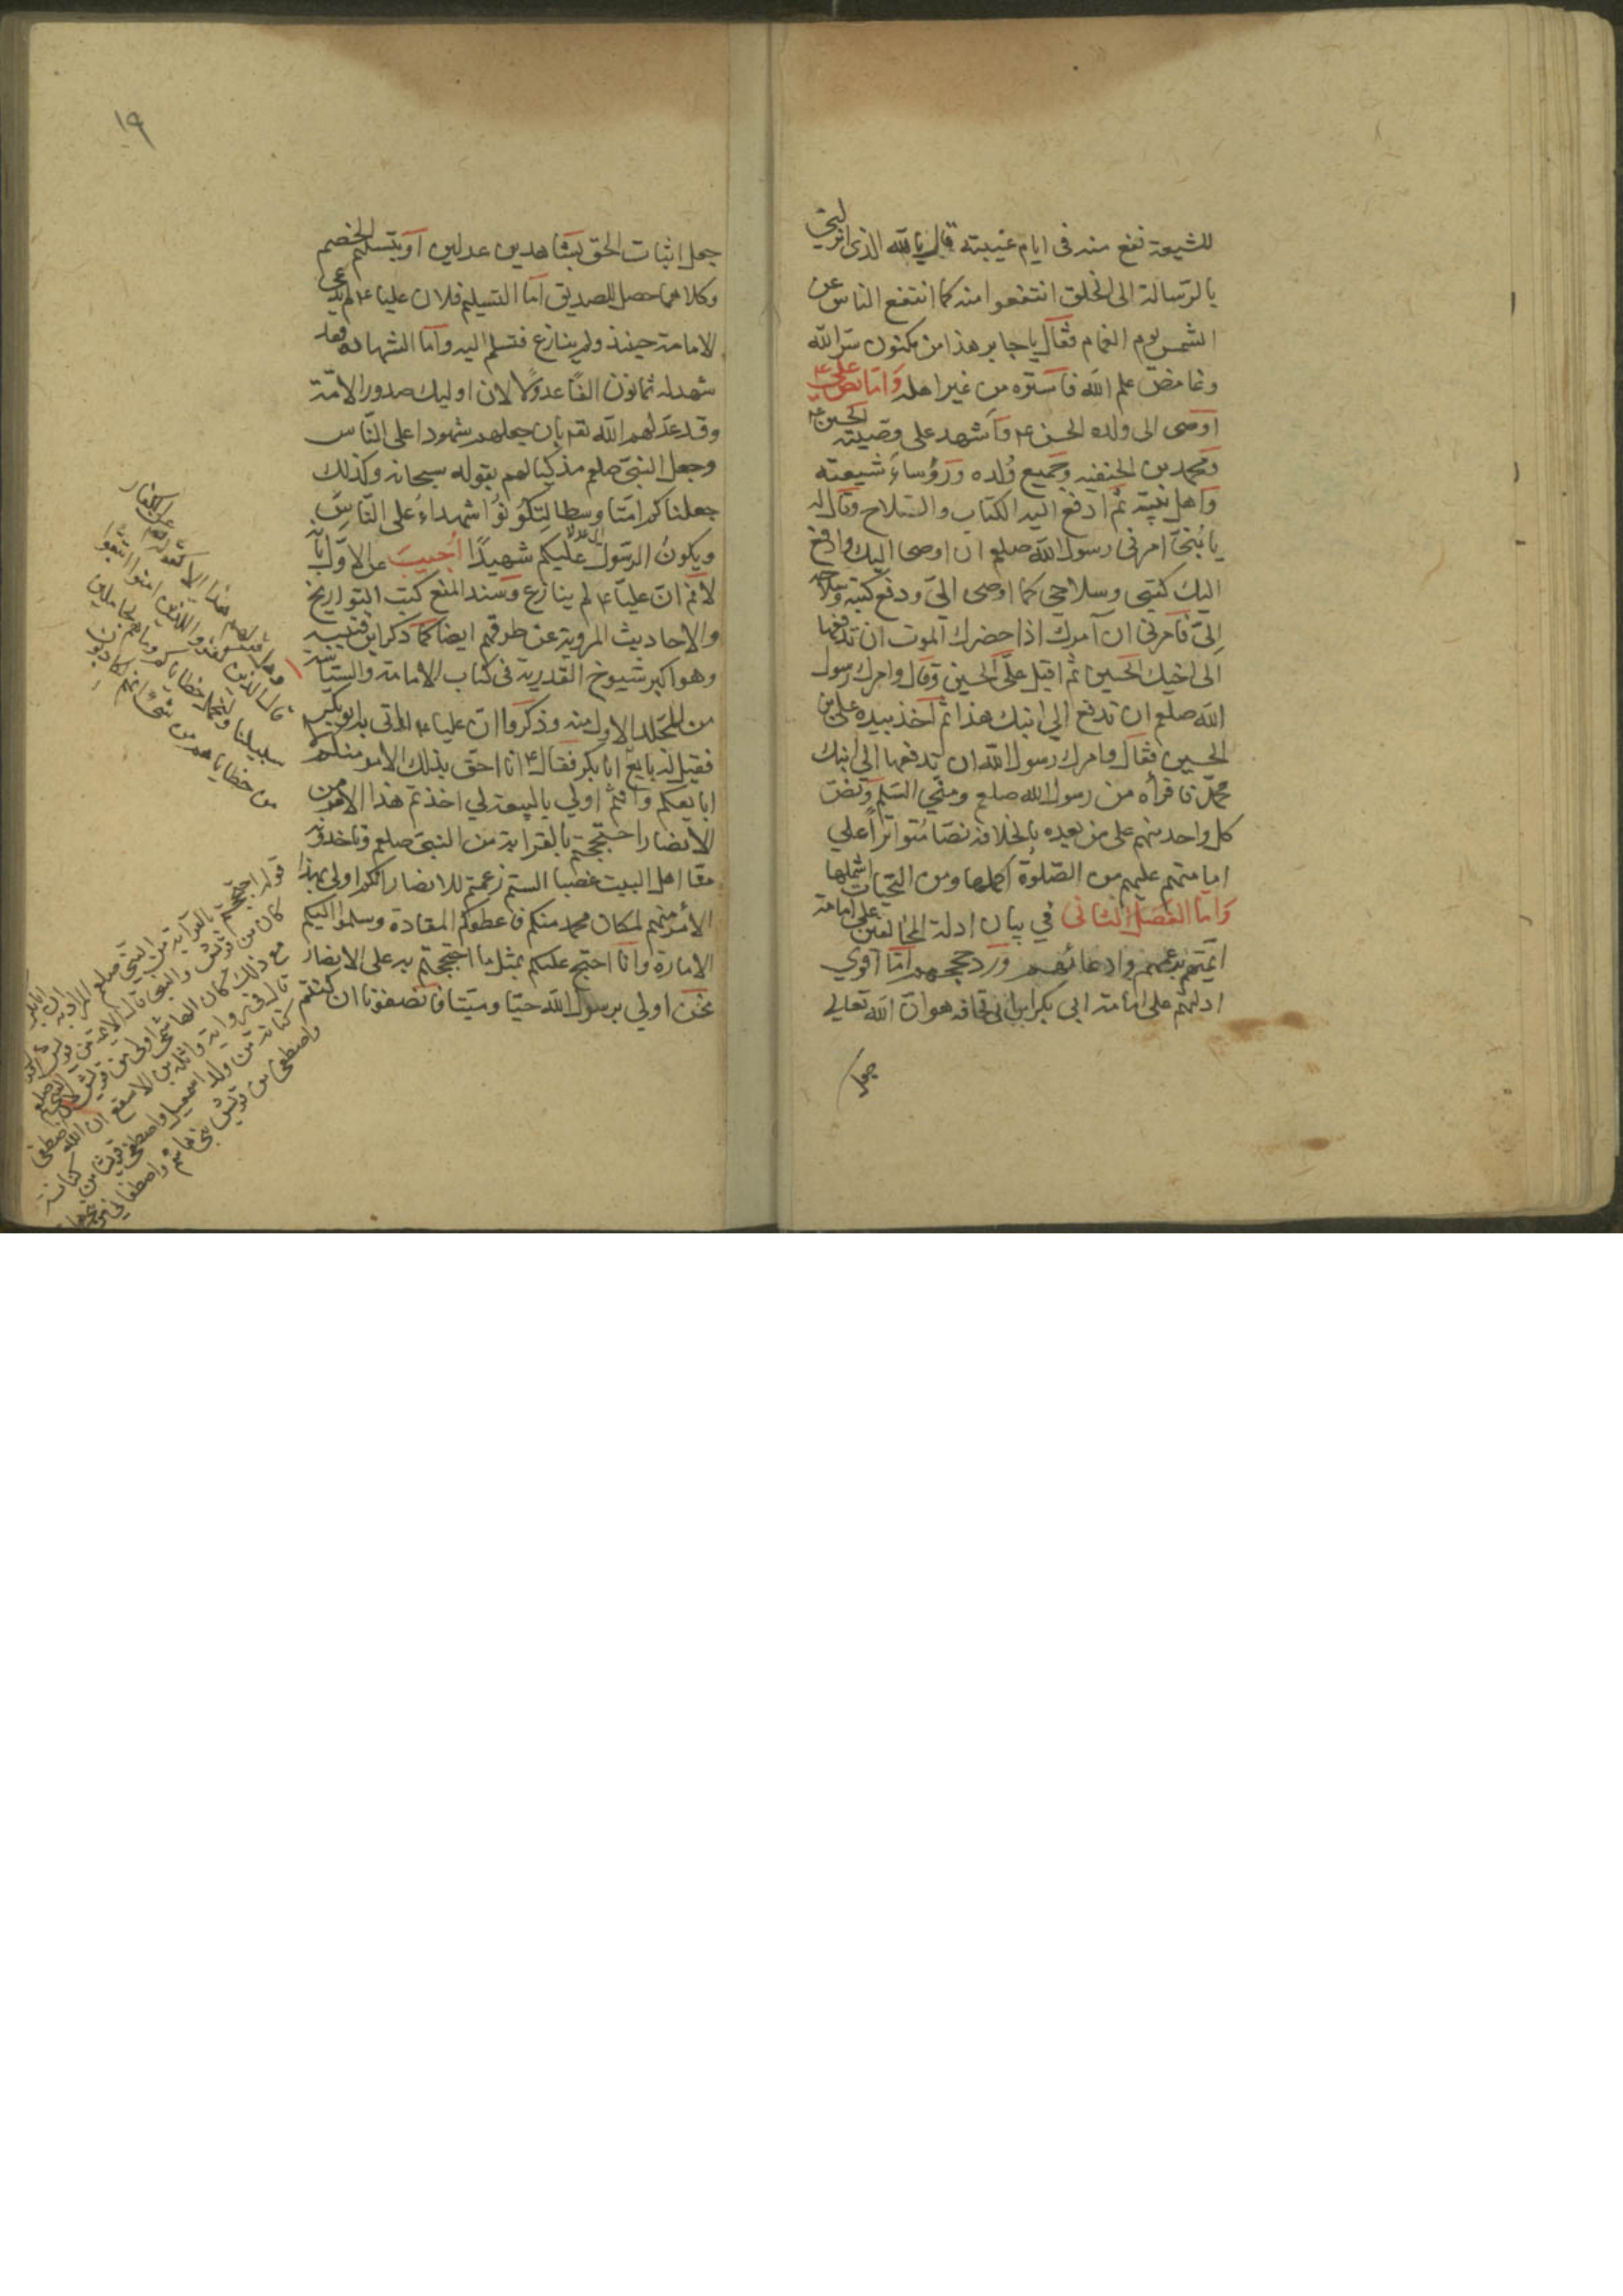 للشيعة نفع منه في ايام غيبته قال يا لله الذي
بالرسالة الى الخلق انتفعوا منه كما انتفع الناس عن
الشمس يوم الغمام فقال يا جابر هذا من مكنون سر الله
وغامض علم الله فاستره من غير اهله واما نص علي ع
اوصى الى ولده الحسن ع واشهد على وصيته الحسين ع
ومحمد بن الحنفيه وجميع ولده ورؤساء شيعته
واهل بيته ثم ادفع اليه الكتاب والسلاح وقال له
يا بني امرني رسول الله صلعم ان اوصى اليك وادفع
اليك كتبي وسلاحي كما اوصى الي ودفع كتبه وسلاحه
الي فامرني ان آمرك اذا حضرك الموت ان تدفعها
الى اخيك الحسين ثم اقبل على الحسين وقال وامرك رسول
الله صلعم ان تدفع الى ابنك هذا ثم آخذ بيده علي بن
الحسين فقال وامرك رسول الله ان تدفعها الى ابنك
محمد فاقرأه من رسول الله صلعم ومني السلم ونص
كل واحد منهم على من بعده بالخلافة نصا متواترا على
امامتهم عليهم من الصلوة اكملها ومن التحيات اشملها
واما الفصل الثاني في بيان ادلة المخالفين على امامة
ائمتهم بزعمهم وادعائهم ورد حججهم اما اقوي
ادلتهم على امامة ابي بكر ابن ابي قحافه هو ان الله تعالى
جعل
١٩
جعل اثبات الحق بشاهدين عدلين او بتسليم الخصم
وكلاهما حصل للصديق اما التسليم فلان عليا ع لم يدعى
الامامة حينئذ ولم ينازع فتسلم اليه واما الشهادة فقد
شهد له ثمانون الفا عدولا لان اوليك صدور الامة
وقد عدلهم الله تعه بان جعلهم شهودا على الناس
وجعل النبي صلعم مذكيا لهم بقوله سبحانه وكذلك
جعلناكم امتا وسطا لتكونوا شهداء على الناس
ويكون الرسول عليكم شهيدا اجيب عن الاول بانه
لانم ان عليا ع لم ينازع وسند المنع كتب التواريخ
والاحاديث المروية عن طرقهم ايضا كما ذكر ابن قتيبه
وهو اكبر شيوخ القدرية في كتاب الامامة والسياسة
من المجلد الاول منه وذكروا ان عليا ع لما اتى به ابو بكر
فقيل له بايع ابا بكر فقال ع انا احق بذلك الامر منكم لا
ابايعكم وانتم اولي بالبيعة لي اخذتم هذا الامر من
الانصار احتججتم بالقرابة من النبي صلعم وتاخذونه
منا اهل البيت غصبا الستم زعمتم للانصار انكم اولى بهذا
الأمر منهم لمكان محمد منكم فاعطوكم المقادة وسلموا اليكم
الامارة وانا احتج عليكم بمثل ما احتججتم به على الانصار
نحن اولى برسول الله حيا وميتا فانصفونا ان كنتم
قال الذين كفروا للذين امنوا اتبعوا
سبيلنا ولنحمل خطاياكم وما هم بحاملين
من خطاياهم من شئ انهم لكاذبون
قوله احتججتم بالقرابة من النبي صلعم
كان من قريش والنبي قال الائمة من قريش
مع ذلك كان الهاشمي اولى من قريش
قال في رواية واثلة بن الاسقع ان الله اصطفى
كنانة من ولد اسمعيل واصطفى قريشا من كنانة
واصطفى من قريش بني هاشم واصطفاني من بني هاشم